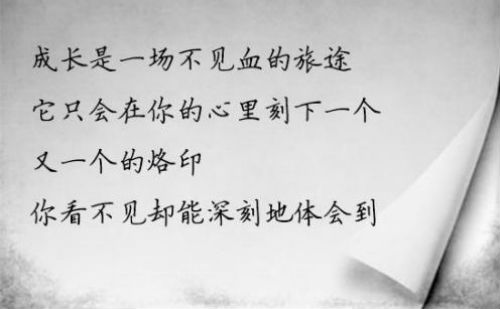 成长是一场不见血的旅途
它只会在你的心里刻下一个
又一个的烙印
你看不见却能深刻地体会到